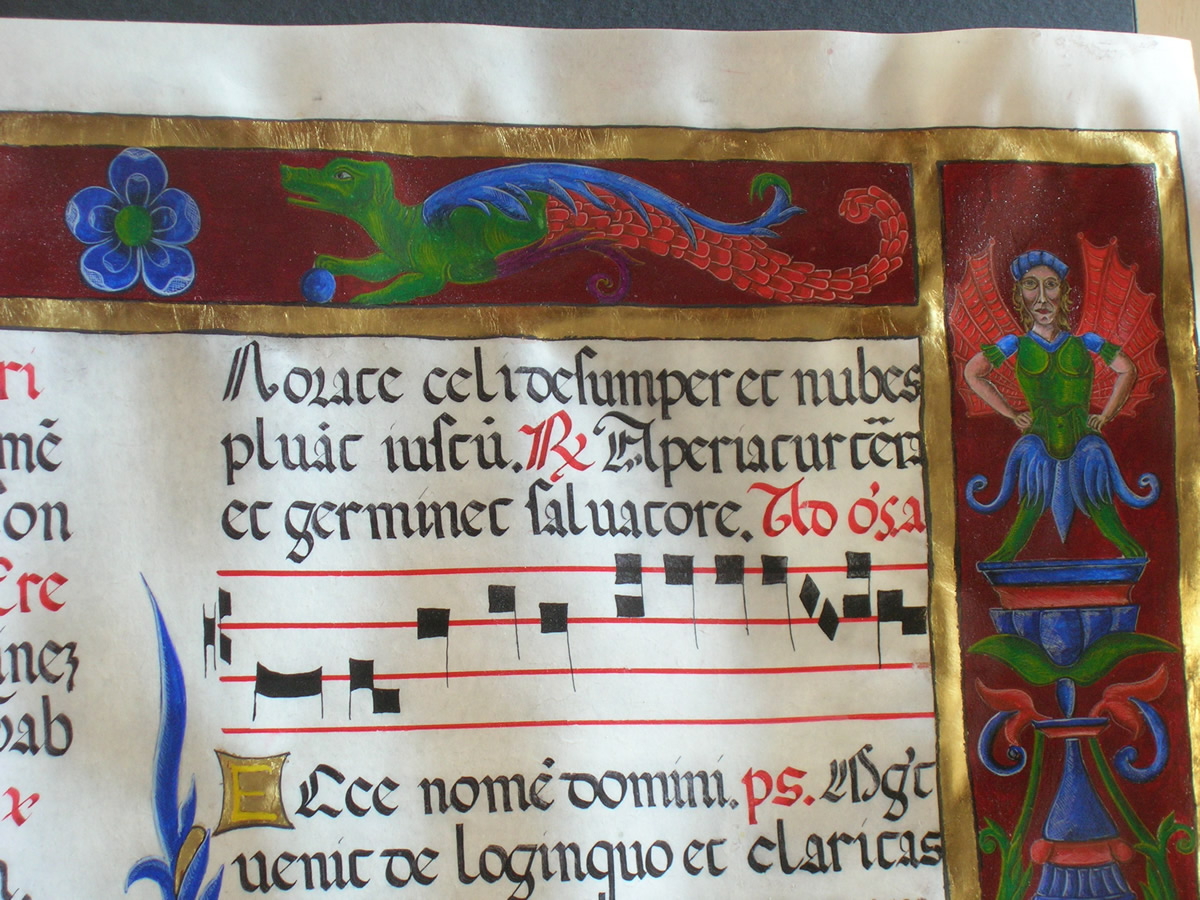 ri
mē
on
Ere
inez
ab
x
Rorate celi deſumper et nubes
pluāt iuſtū. ℟ Aperiatur tēra
et germinet ſaluatore. Ad
ECce nomē domini. ps. Mḡt
uenit de loginquo et claritas